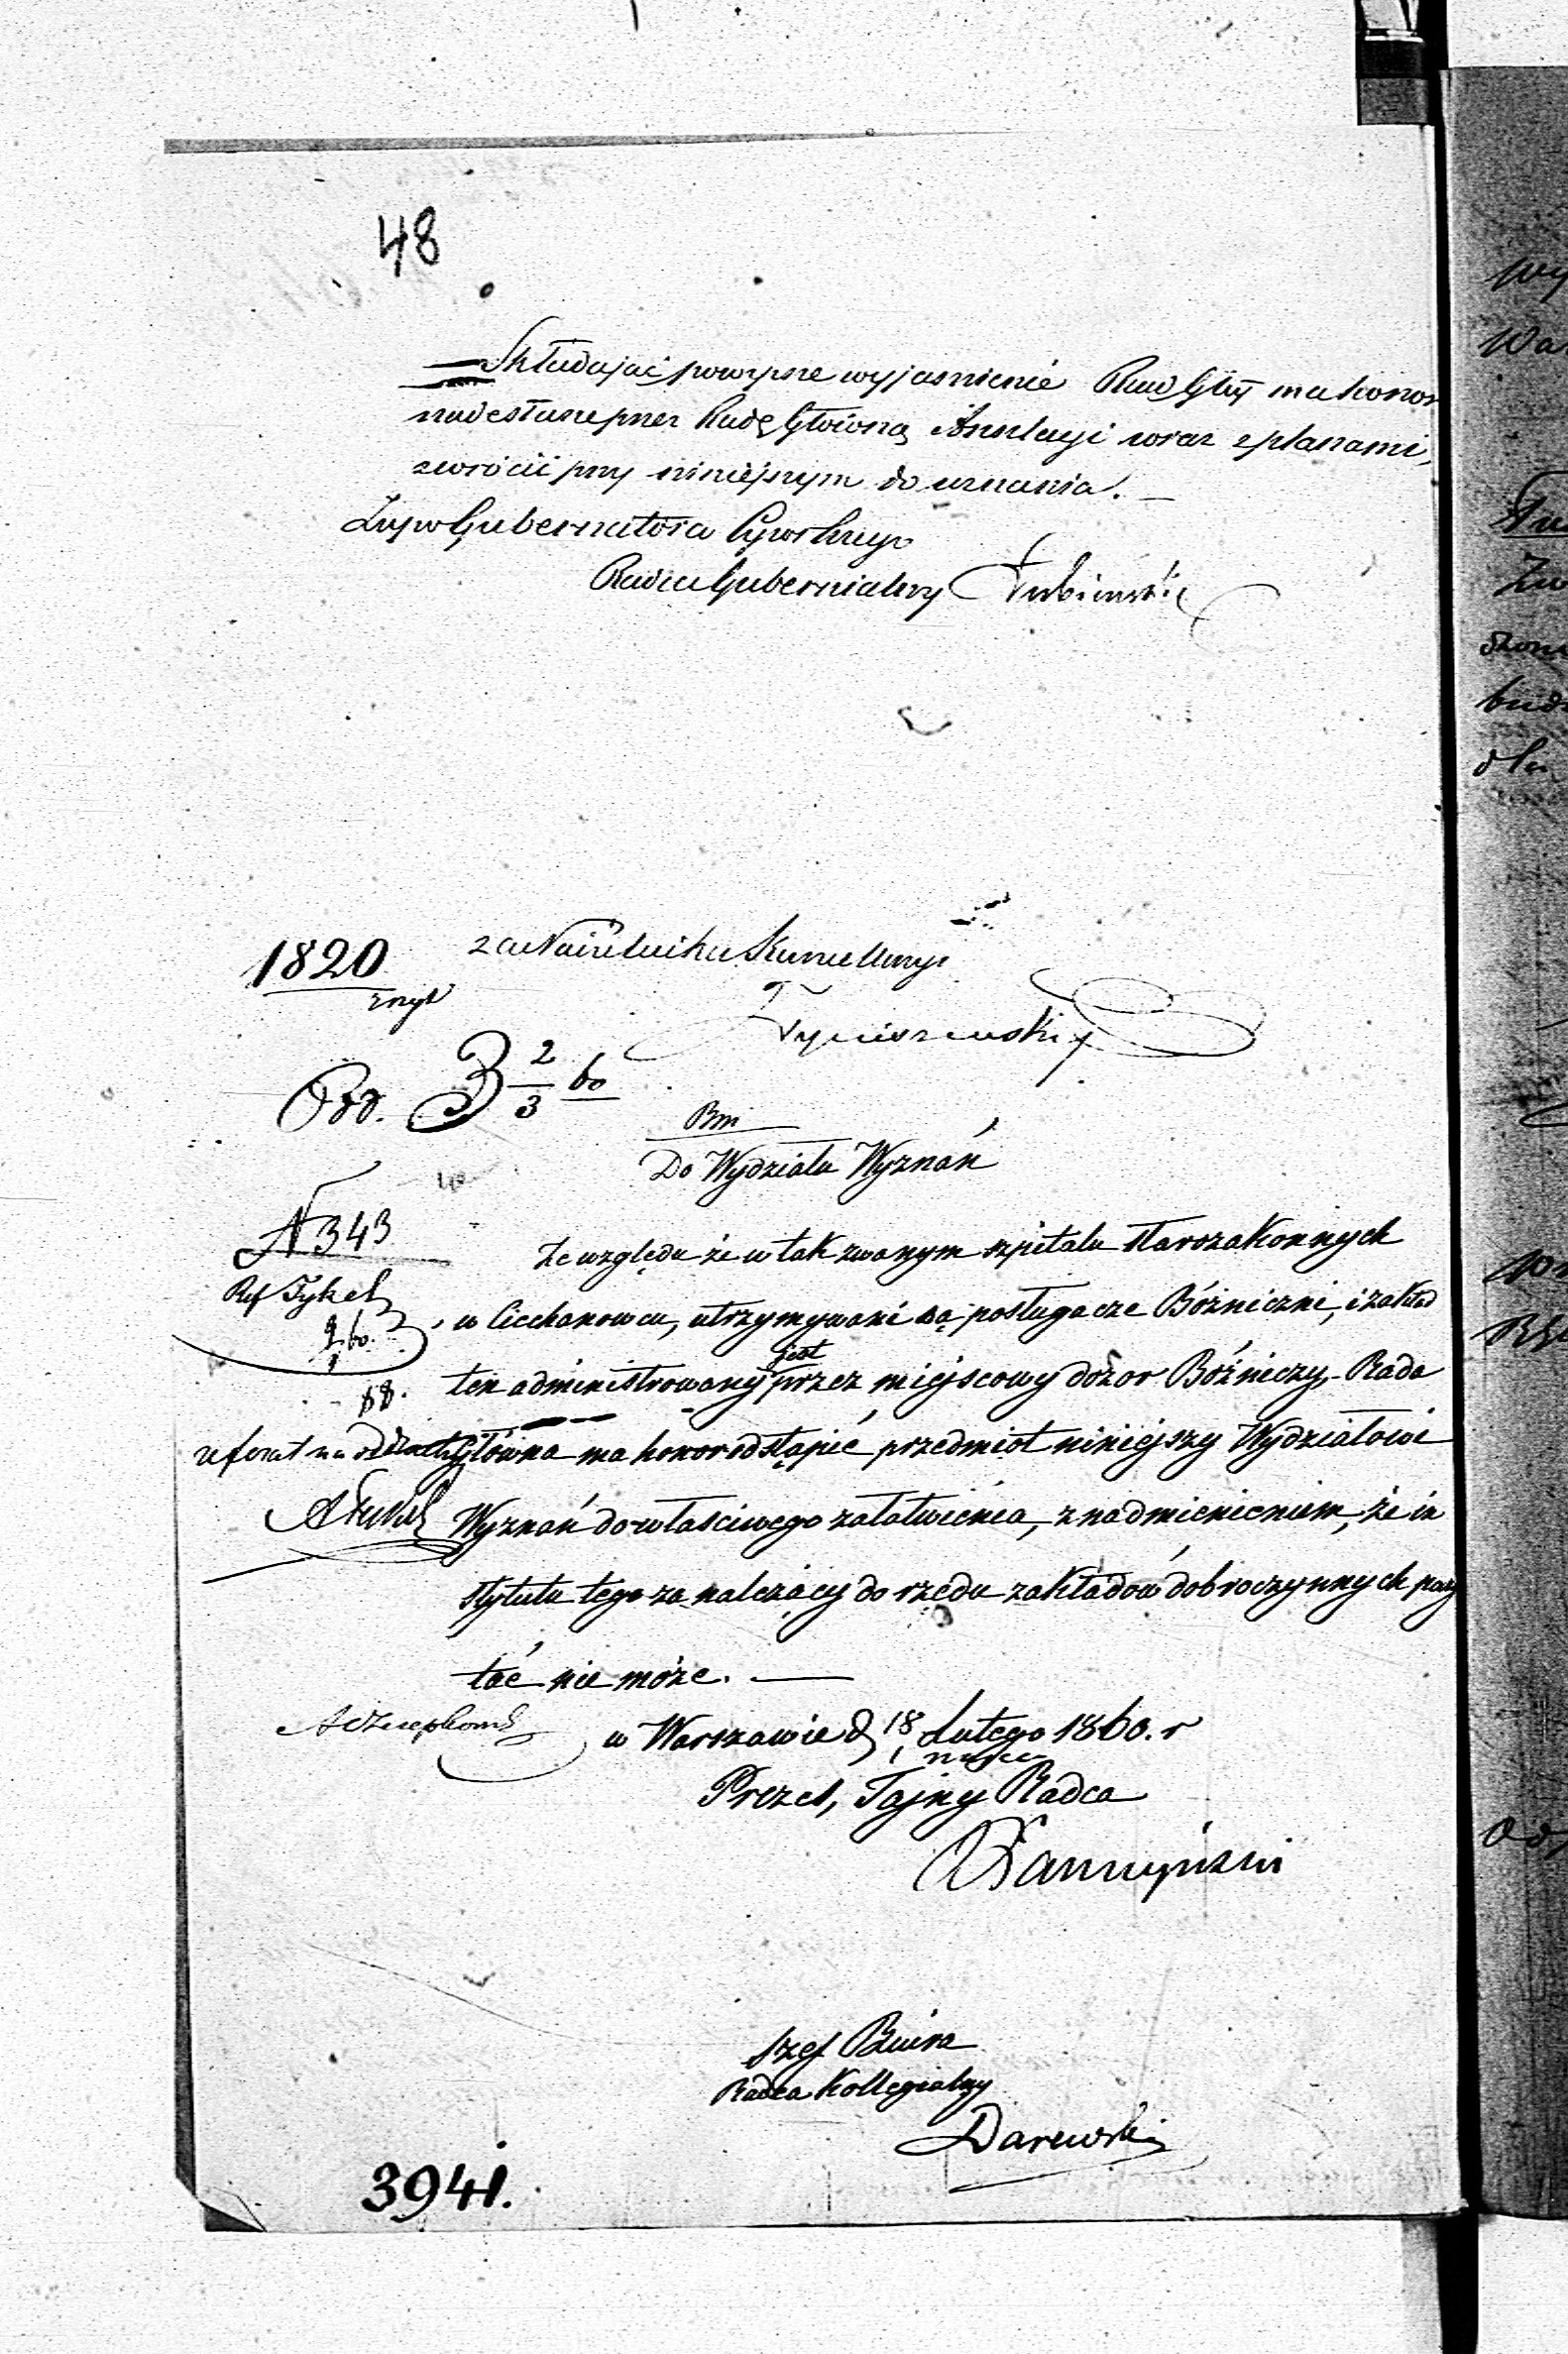 48
Składając powyższe wyjaśnienie Radzie Głnej ma honor
nadesłane przez Radę Główną Anszlagi wraz z planami,
zwrócić przy niniejszym do uznania. —
Gubernatora Cywilnego
Radca Gubernialny
1820
za Naczelnika Kancellaryi
Odd. 3 2/3 60
Do Wydziału Wyznań
N 343
Ze względu że w tak zwanym szpitalu starozakonnych
w Ciechanowcu, utrzymywani są posługacze Bóżniczni, i zakład
jest
ten administrowany przez miejscowy dozor Bóżniczy, - Rada
referat na Główna ma honor odstąpić przedmiot niniejszy Wydziałowi
Wyznań do właściwego załatwienia, z nadmienieniem, że in
stytutu tego za należący do rzędu zakładów dobroczynnych poczy
tać nie może. —
w Warszawie d 18 Lutego 1860. r
1 marca
Prezes, Tajny Radca
Szef Biura
Radca Kollegialny
Darewski
3941.